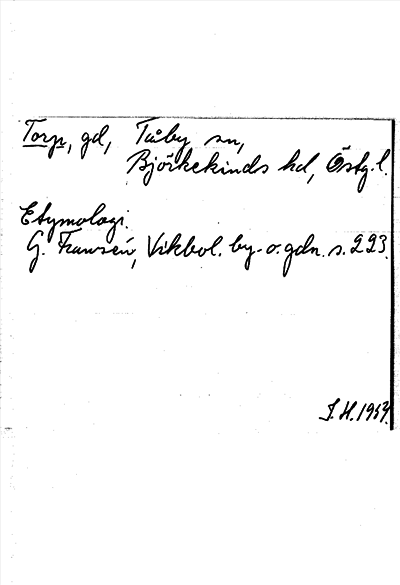 Torp, gd, Tåby sn,
Björkekinds hd, Östg. l.
Etymologi.
G. Franzén, Vikbol. by- o. gdn. s. 223.
J. H. 1957.